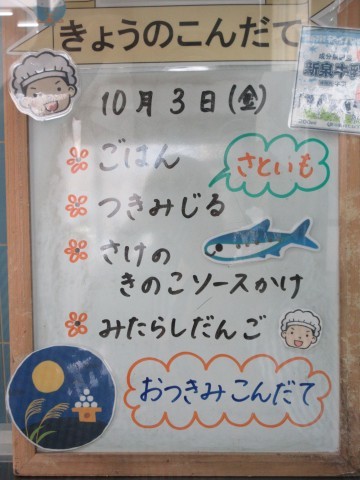 きょうのこんだて
10月3日(金)
ごはん
さといも
つきみじる
さけの
きのこソースかけ
みたらしだんご
おつきみこんだて